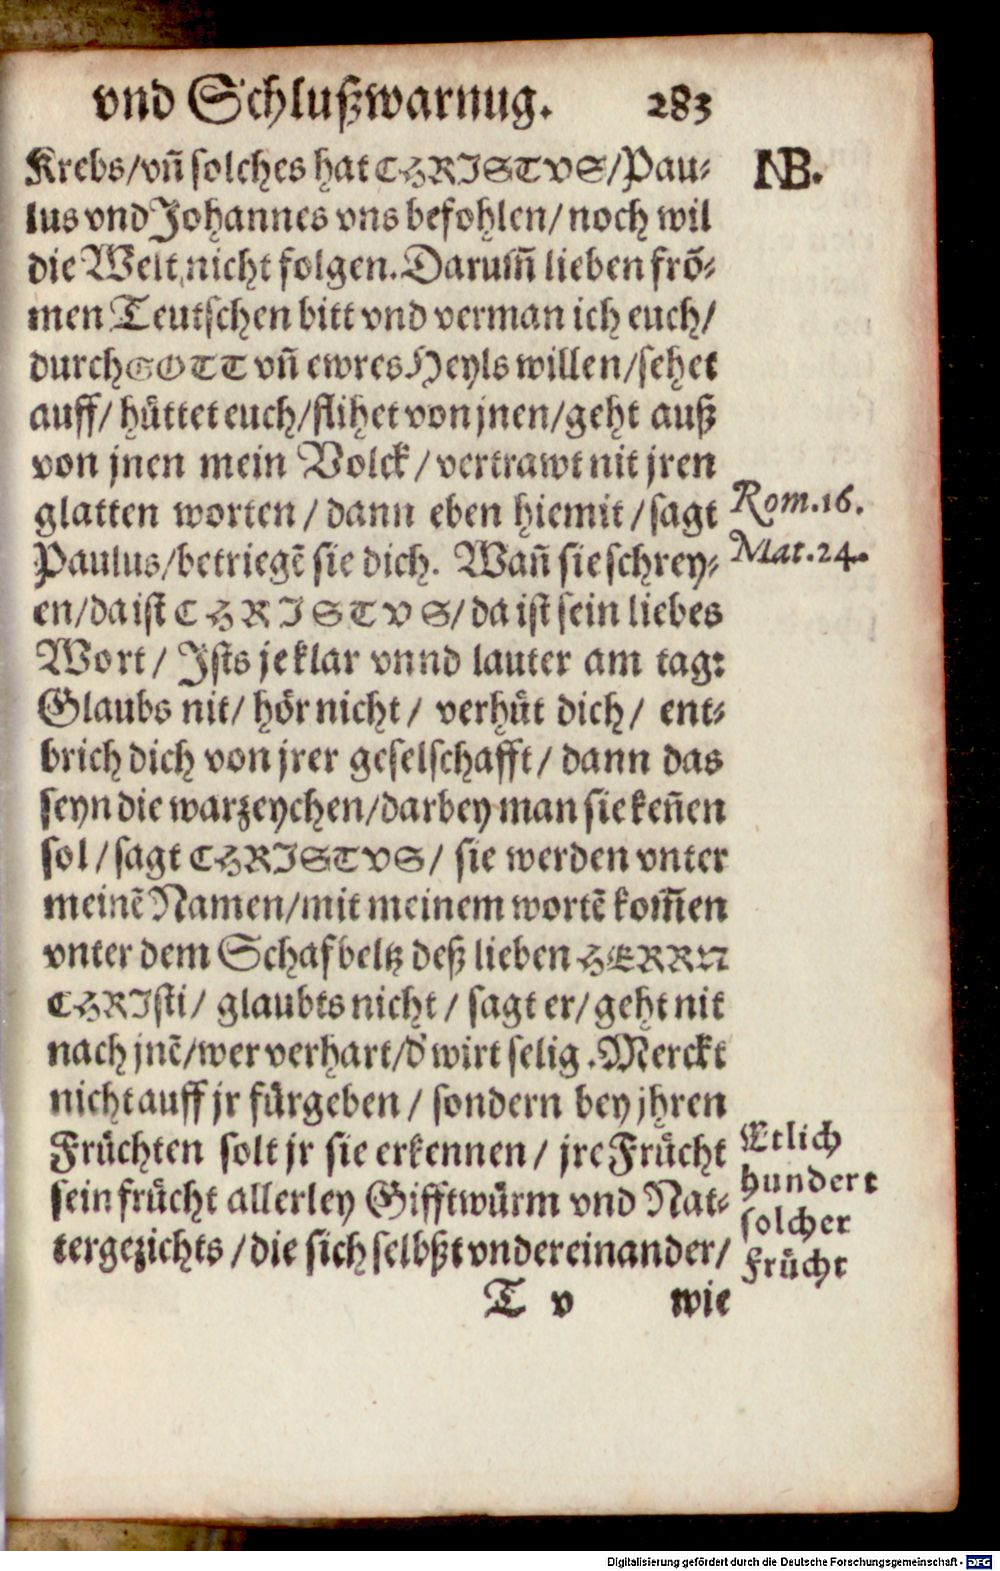 vnd Schlußwarnug. 283
Krebs/vñ solches hat CHRISTVS/Pau-
NB.
lus vnd Johannes vns befohlen/noch wil
die Welt nicht folgen. Darum̃ lieben frõ-
men Teutschen bitt vnd verman ich euch/
durch GOTT vñ ewres Heyls willen/sehet
auff/ huͤttet euch/flihet von jnen/geht auß
von jnen mein Volck/vertrawt nit jren
glatten worten/dann eben hiemit/sagt
Rom.16.
Paulus/betriegẽ sie dich. Wañ sie schrey-
Mat.24.
en/da ist CHRISTVS/da ist sein liebes
Wort/ Jsts je klar vnnd lauter am tag:
Glaubs nit/ hoͤr nicht/ verhuͤt dich/ ent-
brich dich von jrer geselschafft/ dann das
seyn die warzeychen/darbey man sie keñen
sol/sagt CHRISTVS/ sie werden vnter
meinẽ Namen/mit meinem wortẽ kom̃en
vnter dem Schafbeltz deß lieben HERRN
CHRIsti/ glaubts nicht/ sagt er/geht nit
nach jnẽ/wer verhart/d' wirt selig. Merckt
nicht auff jr fuͤrgeben/ sondern bey jhren
Fruͤchten solt jr sie erkennen/ jre Fruͤcht
sein fruͤcht allerley Gifftwuͤrm vnd Nat-
tergezichts/die sich selbßt vndereinander/
Etlich
hundert
solcher
Fruͤcht
T v wie
Digitalisierung gefördert durch die Deutsche Forschungsgemeinschaft - DFG